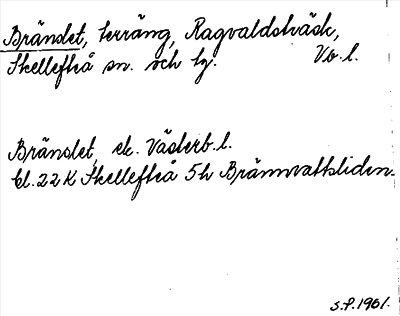 Brändet, terräng, Ragvaldsträsk,
Skellefteå sn. och tg. Vb. l.
Brändet, ek. Västerb. l.
bl. 22 K Skellefteå 5h Brännvattsliden.
S.P. 1961.